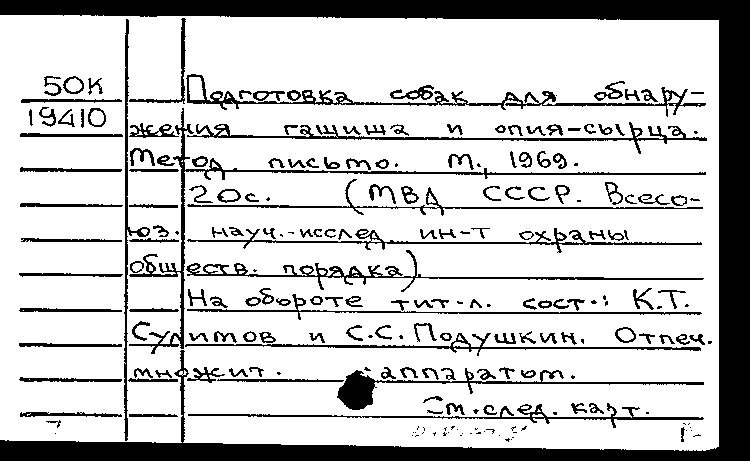 50К
19410
Подготовка собак для обнару-
жения гашиша и опия-сырца.
Метод. письмо. М., 1969.
20с. (МВД СССР. Всесо-
юз. науч.-исслед. ин-т охраны
обществ. порядка).
На обороте тит.л. сост.: К.Т.
Сулимов и С.С. Подушкин. Отпеч.
множит. аппаратом.
См. след. карт.